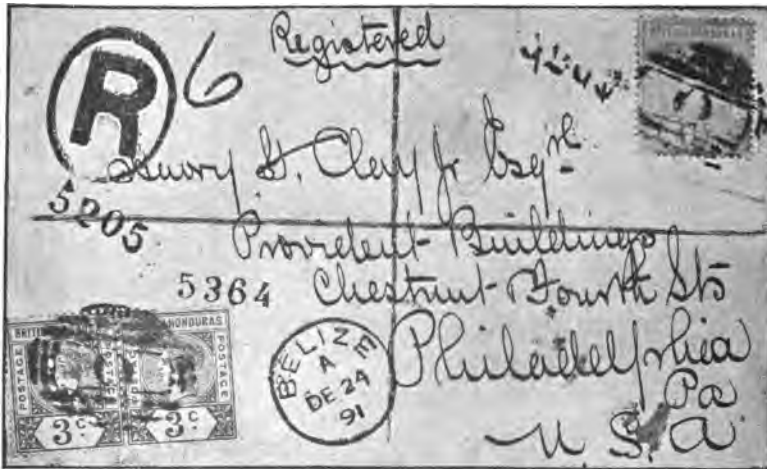 Registered
R 6
Henry St. Clay Jr Esqre
5205
Provident Buildings
5364
Chestnut Fourth Sts
Philadelphia
Pa
U. S. A
BELIZE
A
DE 24
91
HONDURAS
POSTAGE POSTAGE
3c 3c